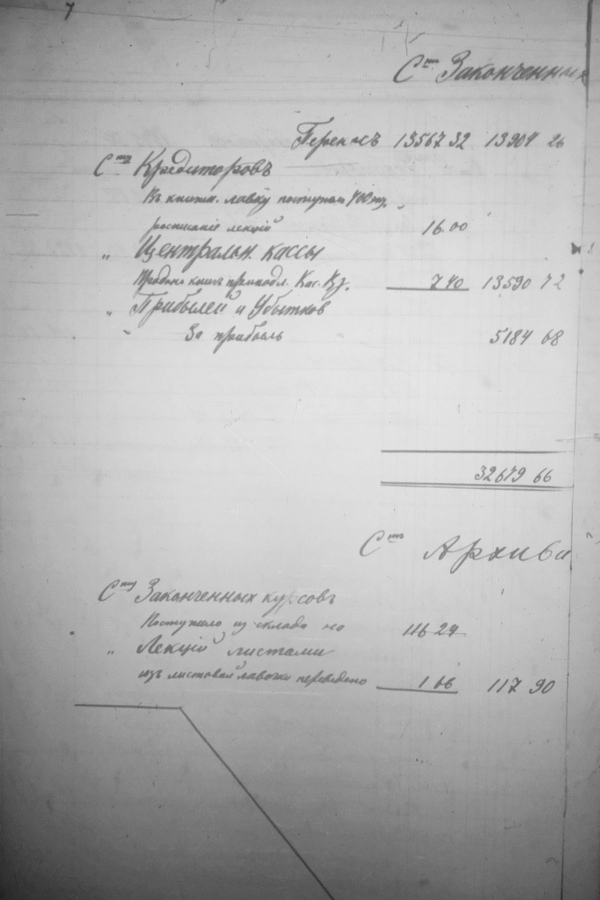 7
Ст. Законченных
Переносъ 13567 32 13904 26
Ст. Кредиторовъ
Въ книжн. лавку поступ. 400 экз.
росписанiе лекцiй 16.00
„ Центральн. кассы
Продано книг 7 40 13590 72
„ Прибылей и Убытков
За прибыль 5184 68
32679 66
Ст. Архива
Ст. Законченных курсовъ
Поступило из склада на 116 24
„ Лекцiй листами
изъ листовой лавочки переведено 1 66 117 90